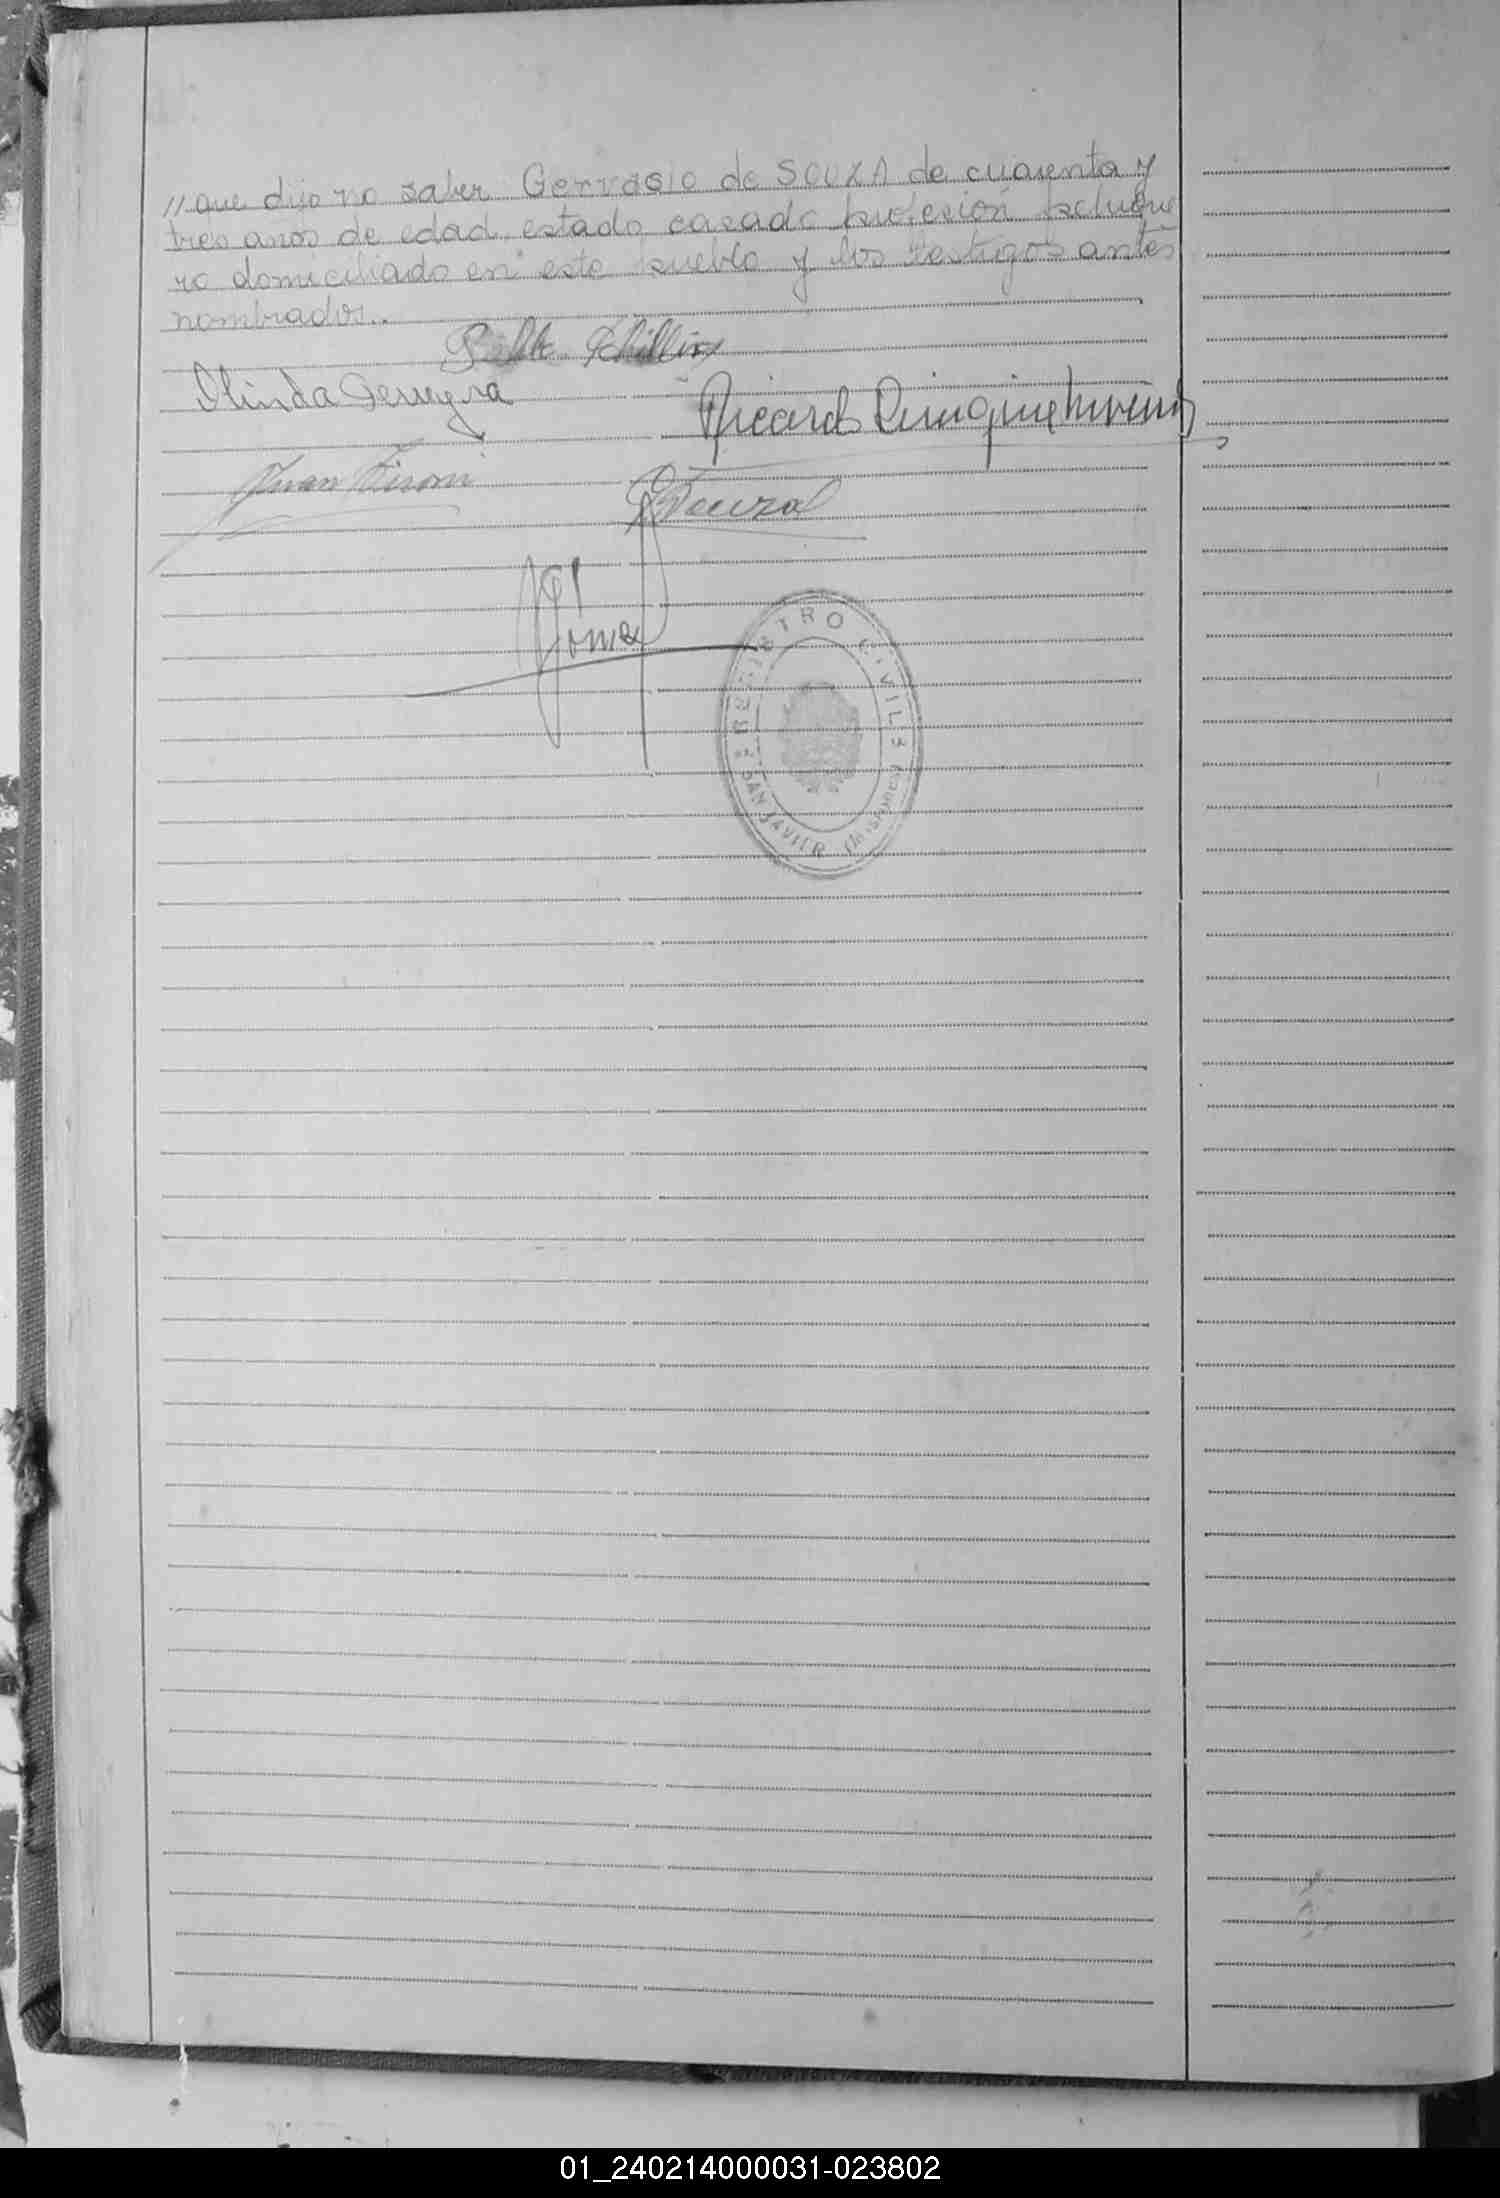 // que dijo no saber Gervasio de SOUZA de cuarenta y
tres años de edad, estado casado profesión peluque
ro domiciliado en este pueblo y los testigos antes
nombrados..
Olinda Ferreyra
Ricardo
Juan
Souza
Gómez
REGISTRO CIVIL
SAN JAVIER (Misiones)
01_240214000031-023802